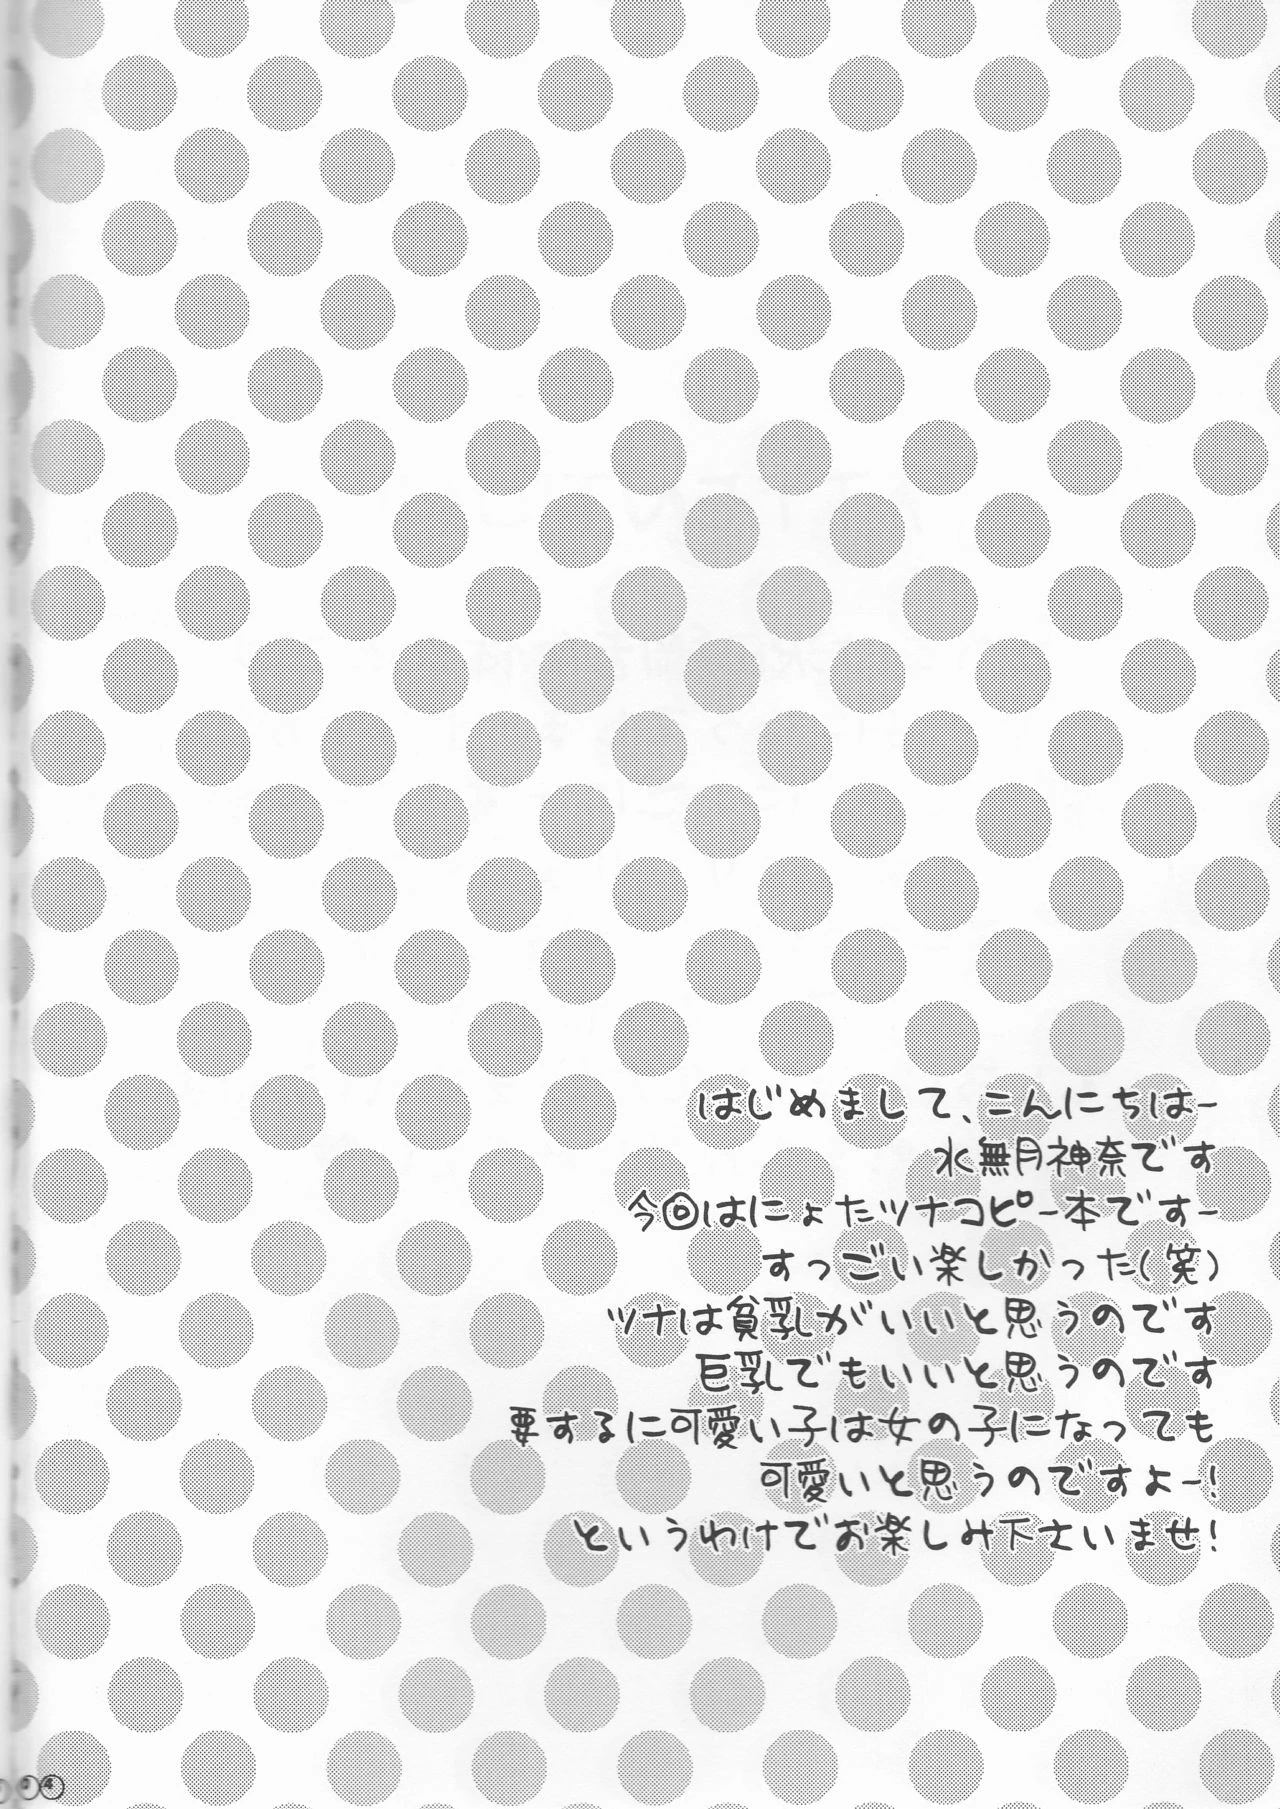 はじめまして、こんにちはー
水無月神奈です
今回はにょたツナコピー本ですー
すっごい楽しかった(笑)
ツナは貧乳がいいと思うのです
巨乳でもいいと思うのです
要するに可愛い子は女の子になっても
可愛いと思うのですよー!
というわけでお楽しみ下さいませ!
04